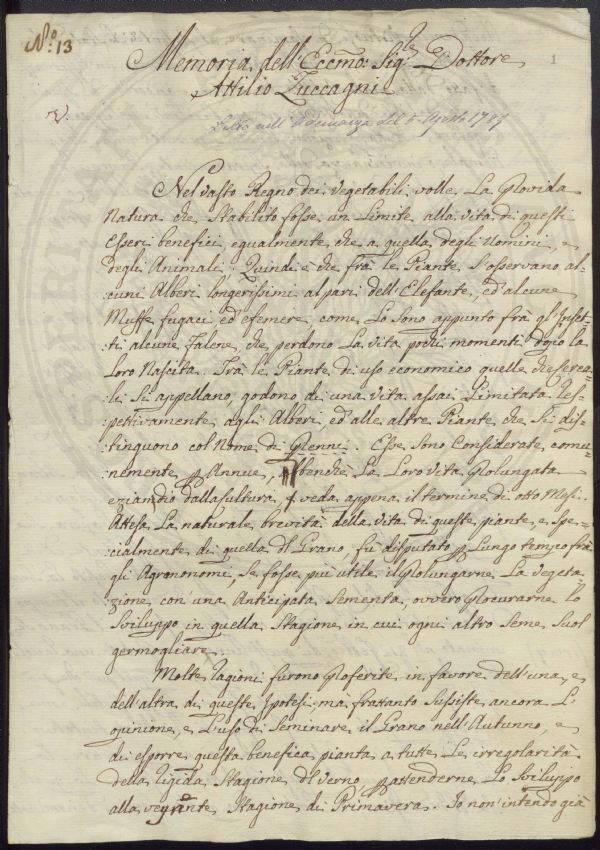 N.º 13
Memoria dell'Eccmo: Sigr Dottore
Attilio Zuccagni
1
Letta nell'Adunanza del 5 Agosto 17
Nel vasto Regno dei vegetabili volle La Provida
Natura che Stabilito fosse un Limite alla vita di questi
Esseri benefici, egualmente che a quella degli Uomini, e
degli Animali; Quindi è che frà le Piante s'osservano al-
:cuni Alberi longevissimi al pari dell'Elefante, ed alcune
Muffe fugaci, ed efemere come Lo sono appunto frà gl'Inset-
:ti alcune Falene, che perdono La vita pochi momenti dopo la
Loro Nascita. Trà le Piante di uso economico quelle che Cerea-
:li Si appellano, godono di una vita assai Limitata res-
:pettivamente agli Alberi, ed alle altre Piante che Si dis-
:tinguono col Nome di Prenni. Esse Sono Considerate comu-
:nemente p Annue, abbenche La Loro vita prolungata
eziandio dalla Cultura, veda appena il termine di otto Mesi.
Attesa La naturale brevità della vita di queste piante, e Spe-
:cialmente di quella dl Grano, fù disputato p Lungo tempo frà
gli Agrononomi, Se fosse più utile il prolungarne La vegeta-
:zione con una Anticipata Sementa, ovvero procurarne lo
Sviluppo in quella Stagione in cui ogni altro Seme Suol
germogliare.
Molte ragioni furono proferite in favore dell'una, e
dell'altra di queste Ipotesi; ma frattanto Sussiste ancora L'
opinione, e L'uso di Seminare il Grano nell'Autunno, e
di esporre questa benefica pianta a tutte Le irregolarità
della rigida Stagione dl verno, p attenderne Lo Sviluppo
alla vegnente Stagione di Primavera. Io non intendo già